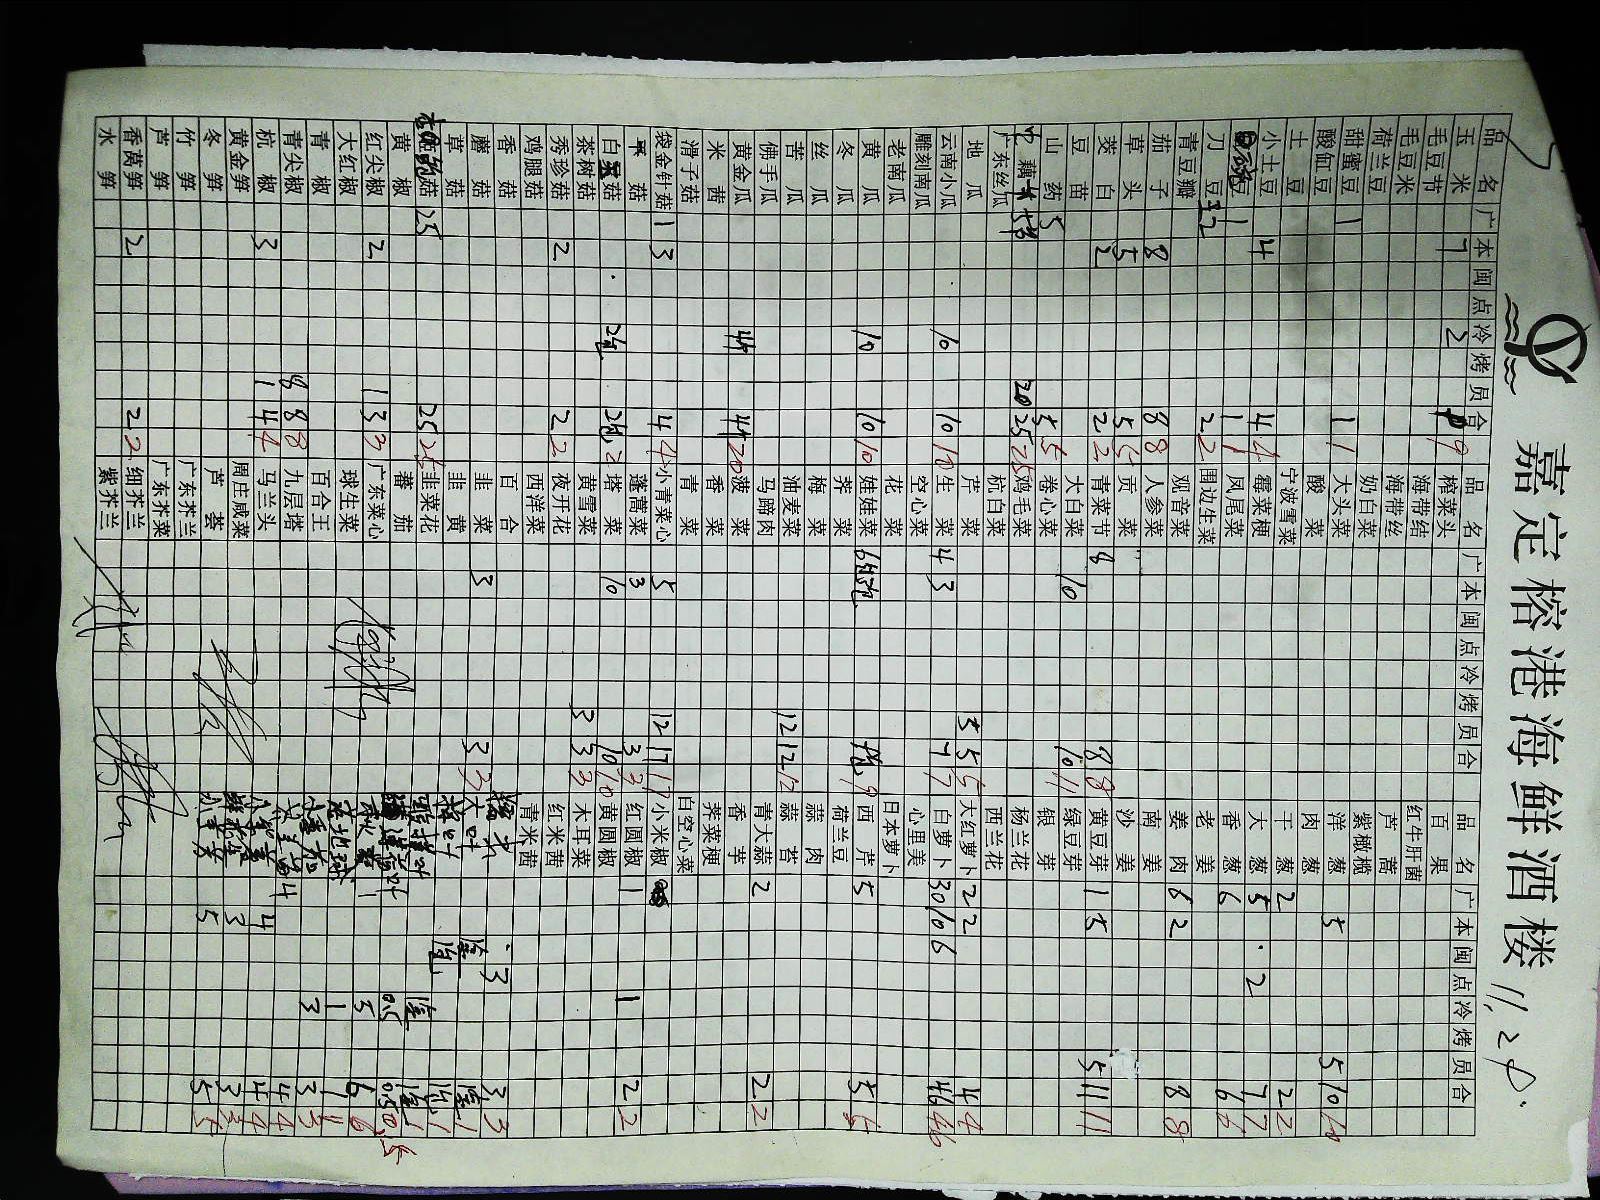 嘉定榕港海鲜酒楼 11.28.
品名 广 本 闽 点 冷 烤 员 合 品名 广 本 闽 点 冷 烤 员 合 品名 广 本 闽 点 冷 烤 员 合
玉米 7 2 9 榨菜头 百果
毛豆节 海带结 红牛肝菌
毛豆米 海带丝 芦蒿
荷兰豆 奶白菜 紫橄榄
甜蜜豆 1 1 1 大头菜 洋葱 5 5 10 10
酸缸豆 酸菜 肉葱
土豆 宁波雪菜 干葱 2 2 2
小土豆 4 4 4 霉菜梗 大葱 5 2 7 7
豆 1 1 1 凤尾菜 香葱 6 6 6
刀豆 2 2 2 围边生菜 老姜
青豆瓣 观音菜 姜肉 6 2 8 8
茄子 8 8 8 人参菜 南姜
草头 5 5 5 贡菜 沙姜
茭白 2 2 2 青菜节 8 8 8 黄豆芽 1 5 5 11 11
豆苗 大白菜 10 10 绿豆芽
山药 5 5 5 卷心菜 银芽
藕 20 25 25 鸡毛菜 杨兰花
广东丝瓜 杭白菜 西兰花
地瓜 芹菜 5 5 5 大红萝卜 2 2 4 4
云南小瓜 10 10 10 生菜 4 3 7 7 白萝卜 30 10 6 46 46
雕刻南瓜 空心菜 心里美
老南瓜 花菜 日本萝卜
黄瓜 10 10 10 娃娃菜 西芹 5 5 5
冬瓜 荠菜 荷兰豆
丝瓜 梅菜 蒜肉
苦瓜 油麦菜 12 12 12 蒜苔
佛手瓜 马蹄肉 青大蒜 2 2 2
黄金瓜 20 菠菜 香芋
米茜 香菜 荠菜梗
滑子菇 青菜 白空心菜
袋金针菇 1 3 4 4 小青菜心 5 12 17 17 小米椒
菇 蓬蒿菜 3 3 3 红圆椒 1 1 2 2
白菇 2包 2包 2 塔菜 10 10 10 黄圆椒
茶树菇 黄雪菜 3 3 3 木耳菜
秀珍菇 2 2 2 夜开花 红米茜
鸡腿菇 西洋菜 青米茜
香菇 百合 3 3 3
蘑菇 韭菜 3 3 3
草菇 韭黄
菇 25 25 25 韭菜花
黄椒 蕃茄 0.5 0.5 0.5
红尖椒 2 1 3 3 广东菜心 5 6 6
大红椒 球生菜 1 1 1
青椒 百合王 3 3 3
青尖椒 8 8 8 九层塔 4 4 4
杭椒 3 1 4 4 马兰头 4 4 4
黄金笋 周庄咸菜 3 3 3
冬笋 芦荟 5 5 5
竹笋 广东芥兰
芦笋 广东芥菜
香莴笋 2 2 2 细芥兰
水笋 紫芥兰